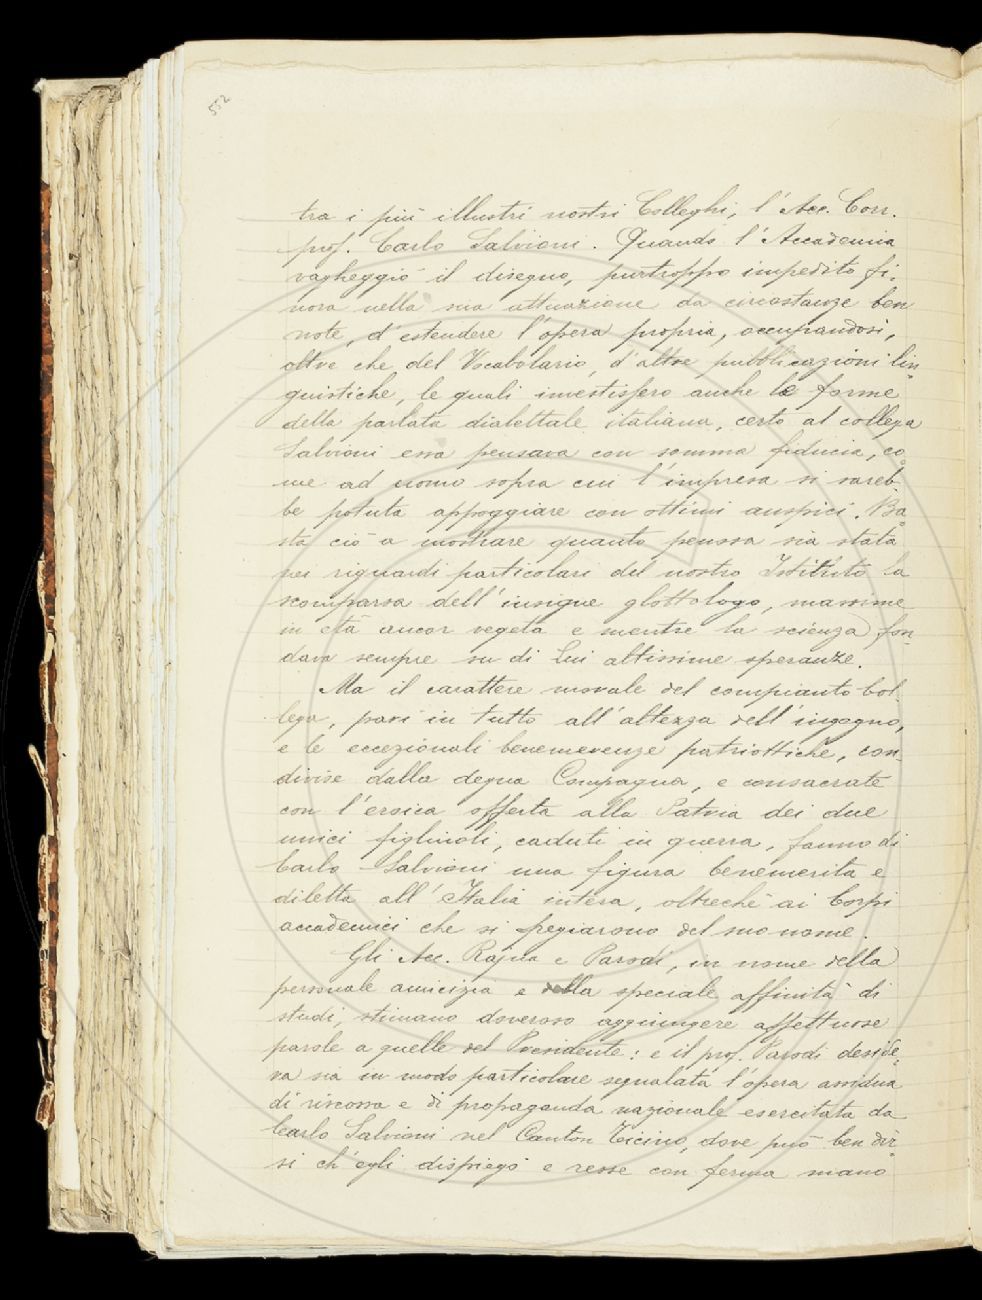 552
tra i più illustri nostri Colleghi, l'Acc. Corr.
prof. Carlo Salvioni. Quando l'Accademia
vagheggiò il disegno, purtroppo impedito fi-
nora nella sua attuazione da circostanze ben
note, d'estendere l'opera propria, occupandosi,
oltre che del Vocabolario, d'altre pubblicazioni lin-
guistiche, le quali investissero anche le forme
della parlata dialettale italiana, certo al collega
Salvioni essa pensava con somma fiducia, co-
me ad uomo sopra cui l'impresa si sareb-
be potuta appoggiare con ottimi auspici. Ba-
sta ciò a mostrare quanto penosa sia stata
nei riguardi particolari del nostro Istituto la
scomparsa dell'insigne glottologo, massime
in età ancor vegeta e mentre la scienza fon-
dava sempre su di Lui altissime speranze.
Ma il carattere morale del compianto Col-
lega, pari in tutto all'altezza dell'ingegno,
e le eccezionali benemerenze patriottiche, con-
divise dalla degna Compagna, e consacrate
con l'eroica offerta alla Patria dei due
unici figliuoli, caduti in guerra, fanno di
Carlo Salvioni una figura benemerita e
diletta all'Italia intera, oltreche ai Corpi
accademici che si pregiarono del suo nome.
Gli Acc. Rajna e Parodi, in nome della
personale amicizia e della speciale affinità di
studi, stimano doveroso aggiungere affettuose
parole a quelle del Presidente: e il prof. Parodi deside-
ra sia in modo particolare segnalata l'opera assidua
di riscossa e di propaganda nazionale esercitata da
Carlo Salvioni nel Canton Ticino, dove può ben dir-
si ch'egli dispiegò e resse con ferma mano